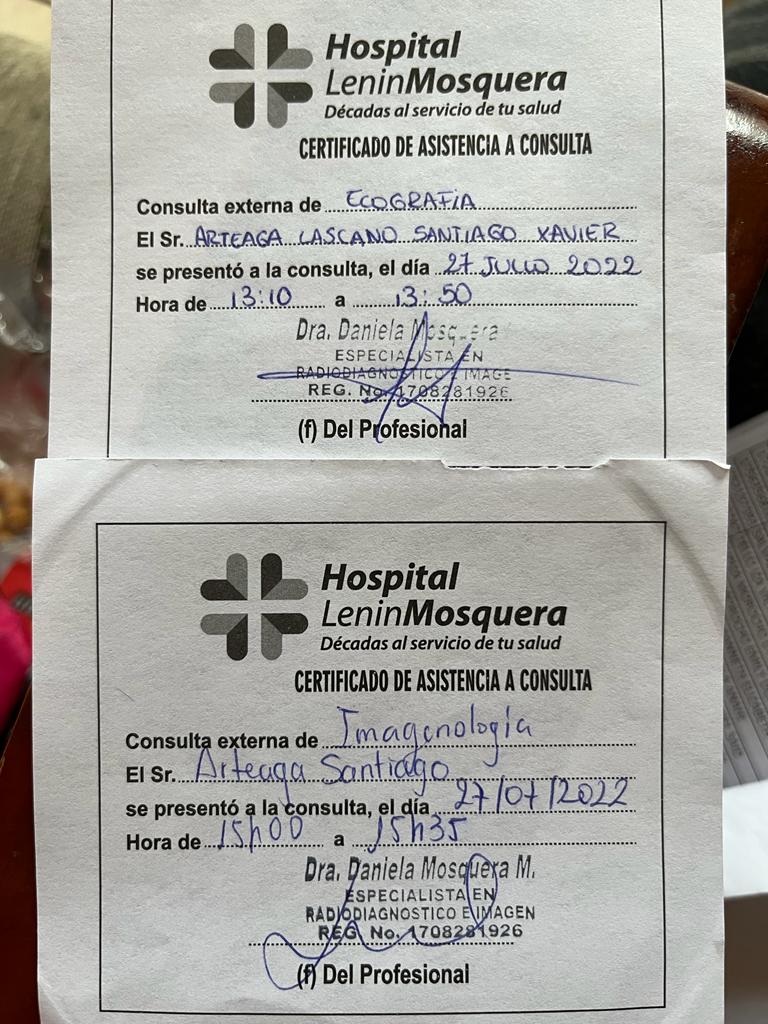 Hospital
LeninMosquera
Décadas al servicio de tu salud
CERTIFICADO DE ASISTENCIA A CONSULTA
Consulta externa de ECOGRAFIA
El Sr. ARTEAGA LASCANO SANTIAGO XAVIER
se presentó a la consulta, el día 27 JULIO 2022
Hora de 13:10 a 13:50
Dra. Daniela Mosquera
ESPECIALISTA EN
RADIODIAGNOSTICO E IMAGE
REG. No. 1708281926
(f) Del Profesional
Hospital
LeninMosquera
Décadas al servicio de tu salud
CERTIFICADO DE ASISTENCIA A CONSULTA
Consulta externa de Imagenología
El Sr. Arteaga Santiago
se presentó a la consulta, el día 27/07/2022
Hora de 15h00 a 15h35
Dra. Daniela Mosquera M.
ESPECIALISTA EN
RADIODIAGNOSTICO E IMAGEN
REG. No. 1708281926
(f) Del Profesional